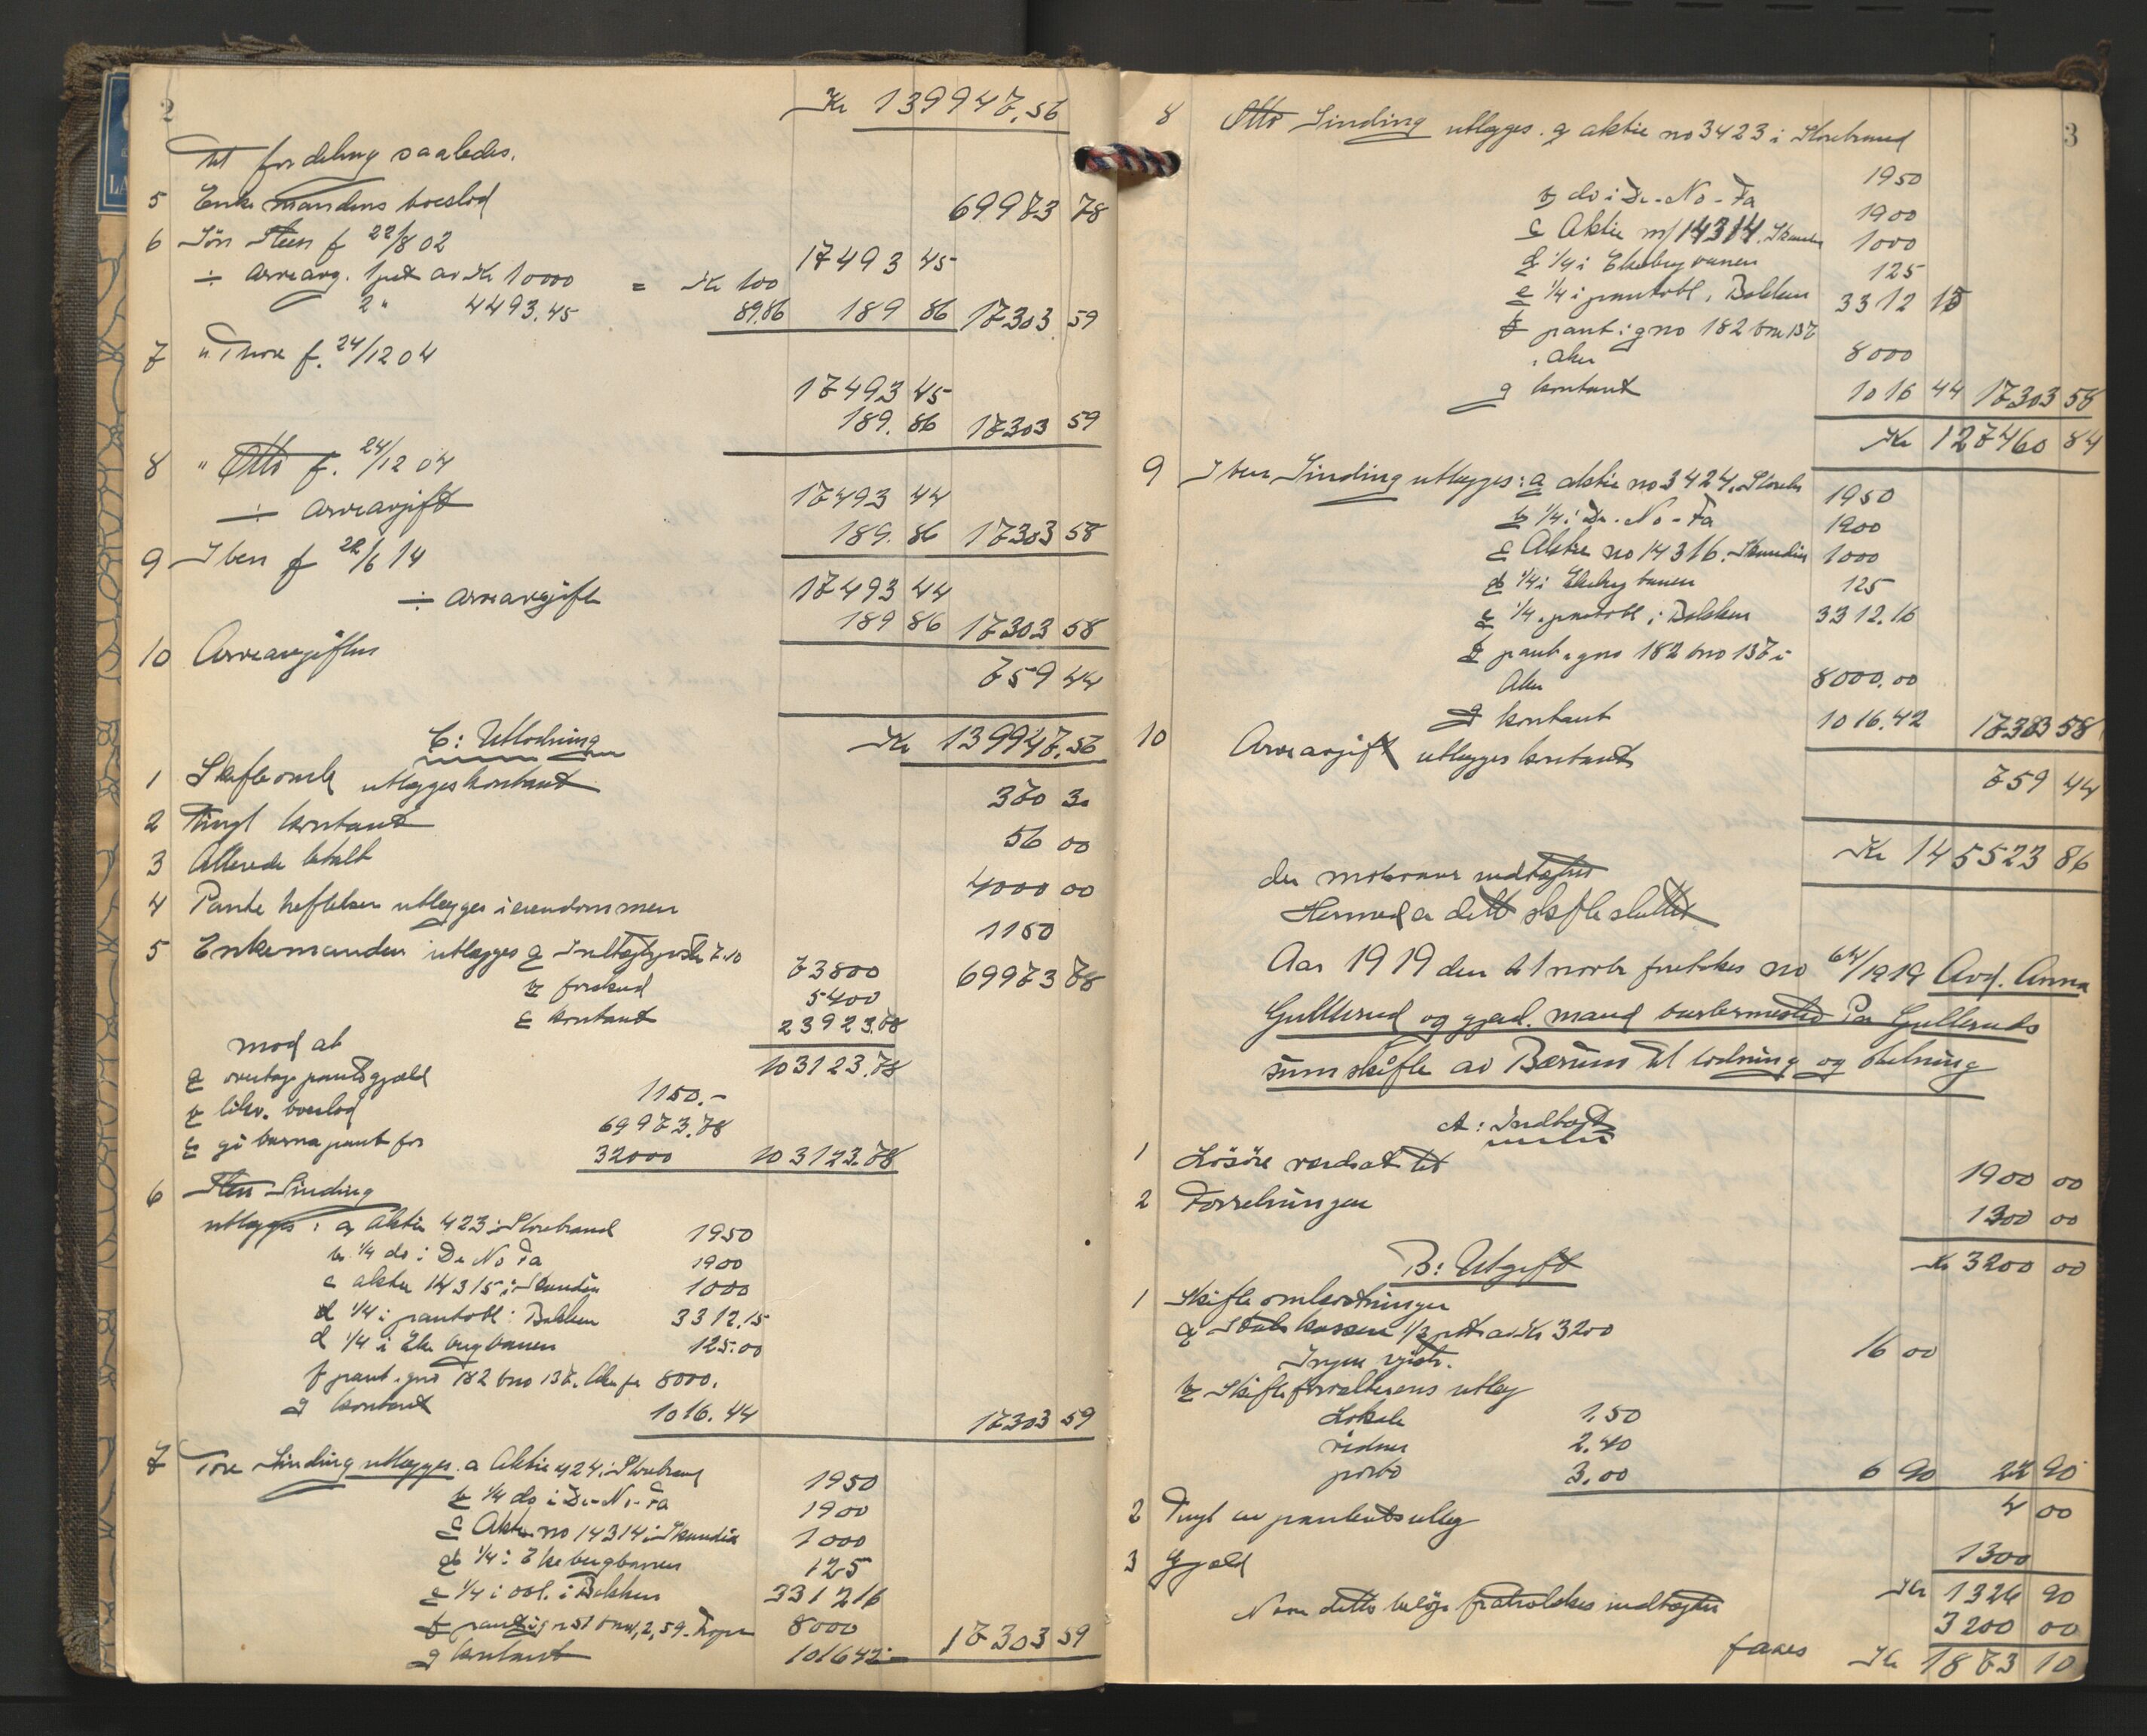 2
Kr 139947,56
til fordeling saaledes.
5 Enkemandens boeslod 69973 78
6 Sön Sten f 22/8 02 17493 45
÷ arveavg. 1 pct av Kr 10000 = Kr 100
2 " 4493.45 89.86 189 86 17303 59
7 " Thore f. 24/12 04
17493 45
189. 86 17303 59
8 " Otto f. 24/12 04 17493 44
÷ arveavgift 189. 86 17303 58
9 Iben f 22/6 14 17493 44
÷ arveavgift 189 86 17303 58
10 Arveavgiften 759 44
Kr 139947.56
C: Utlodning
1 Skifteomk utlægges kontant 370 30
2 Tingl kontant 56 00
3 Allerede betalt 4000 00
4 Pante heftelser utlægges i eiendommen 1150
5 Enkemanden utlægges a Indtægtspost 7.10 73800 69973 78
b forskud 5400
c kontant 23923.78
mod at 103123.78
a overtage pantegjæld 1150.-
b likv. boeslod 69973.78
c gi barna pant for 32000 103123.78
6 Sten Sinding
utlægges: a Aktie 423 i Storebrand 1950
b 1/4 do i De No Fa 1900
c aktie 14315 i Skandia 1000
d 1/4 i pantobl i Bakken 3312.15
d 1/4 i Ekebergbanen 125.00
f pant i gno 182 bno 137. Aker for 8000.
g kontant 1016.44 17303 59
7 Tore Sinding utlægges. a Aktie 424 i Storebrand 1950
b 1/4 do i De-No-Fa 1900
c Aktie no 14314 i Skandia 1000
d 1/4 i Ekebergbanen 125
e 1/4 i obl. i Bakken 3312 16
f pant i gn 51 bno 1, 2, 59. 8000
g kontant 1016 42 17303 59
3
8 Otto Sinding utlægges. a aktie no 3423 i Storebrand
1950
b do i De-No-Fa 1900
c Aktie m/ 14314. Skandia 1000
d 1/4 i Ekebergbanen 125
e 1/4 i pantobl. i Bakken 3312 15
f pant i gno 182 bno 137
i Aker 8000
g kontant 1016 44 17303 58
Kr 127460 84
9 Iben Sinding utlægges: a aktie no 3424. Storebr 1950
b 1/4 i De-No-Fa 1900
c Aktie no 14316. Skandia 1000
d 1/4 i Ekebergbanen 125
e 1/4. pantobl i Bakken 3312.16
f pant i gno 182 bno 137 i
Aker 8000.00
g kontant 1016.42 17303 58
10 Arveavgift utlægges kontant 759 44
Kr 145523 86
der motsvarer indtægten
Hermed er dette skifte sluttet.
Aar 1919 den 21 novbr foretokes no 64/1919 Avd. Anna
Gullerud og gjenl. mand Per Gulleruds
sumskifte av Bærum til lodning og slutning
A: Indtægt
1 Lösöre verdsat til 1900 00
2 Forretningen 1300 00
Kr 3200 00
B: Utgift
1 Skifteomkostninger
a Statskassen 1/2 pct av Kr 3200 16 00
Ingen registr.
b Skifteforvalterens utlæg
Lokale 1.50
vidner 2.40
porto 3.00 6 90 22 90
2 Tingl av panteutlæg 4 00
3 Gjæld 1300
Kr 1326 90
Naar dette belöp fratrækkes indtægten 3200 00
faaes Kr 1873 10